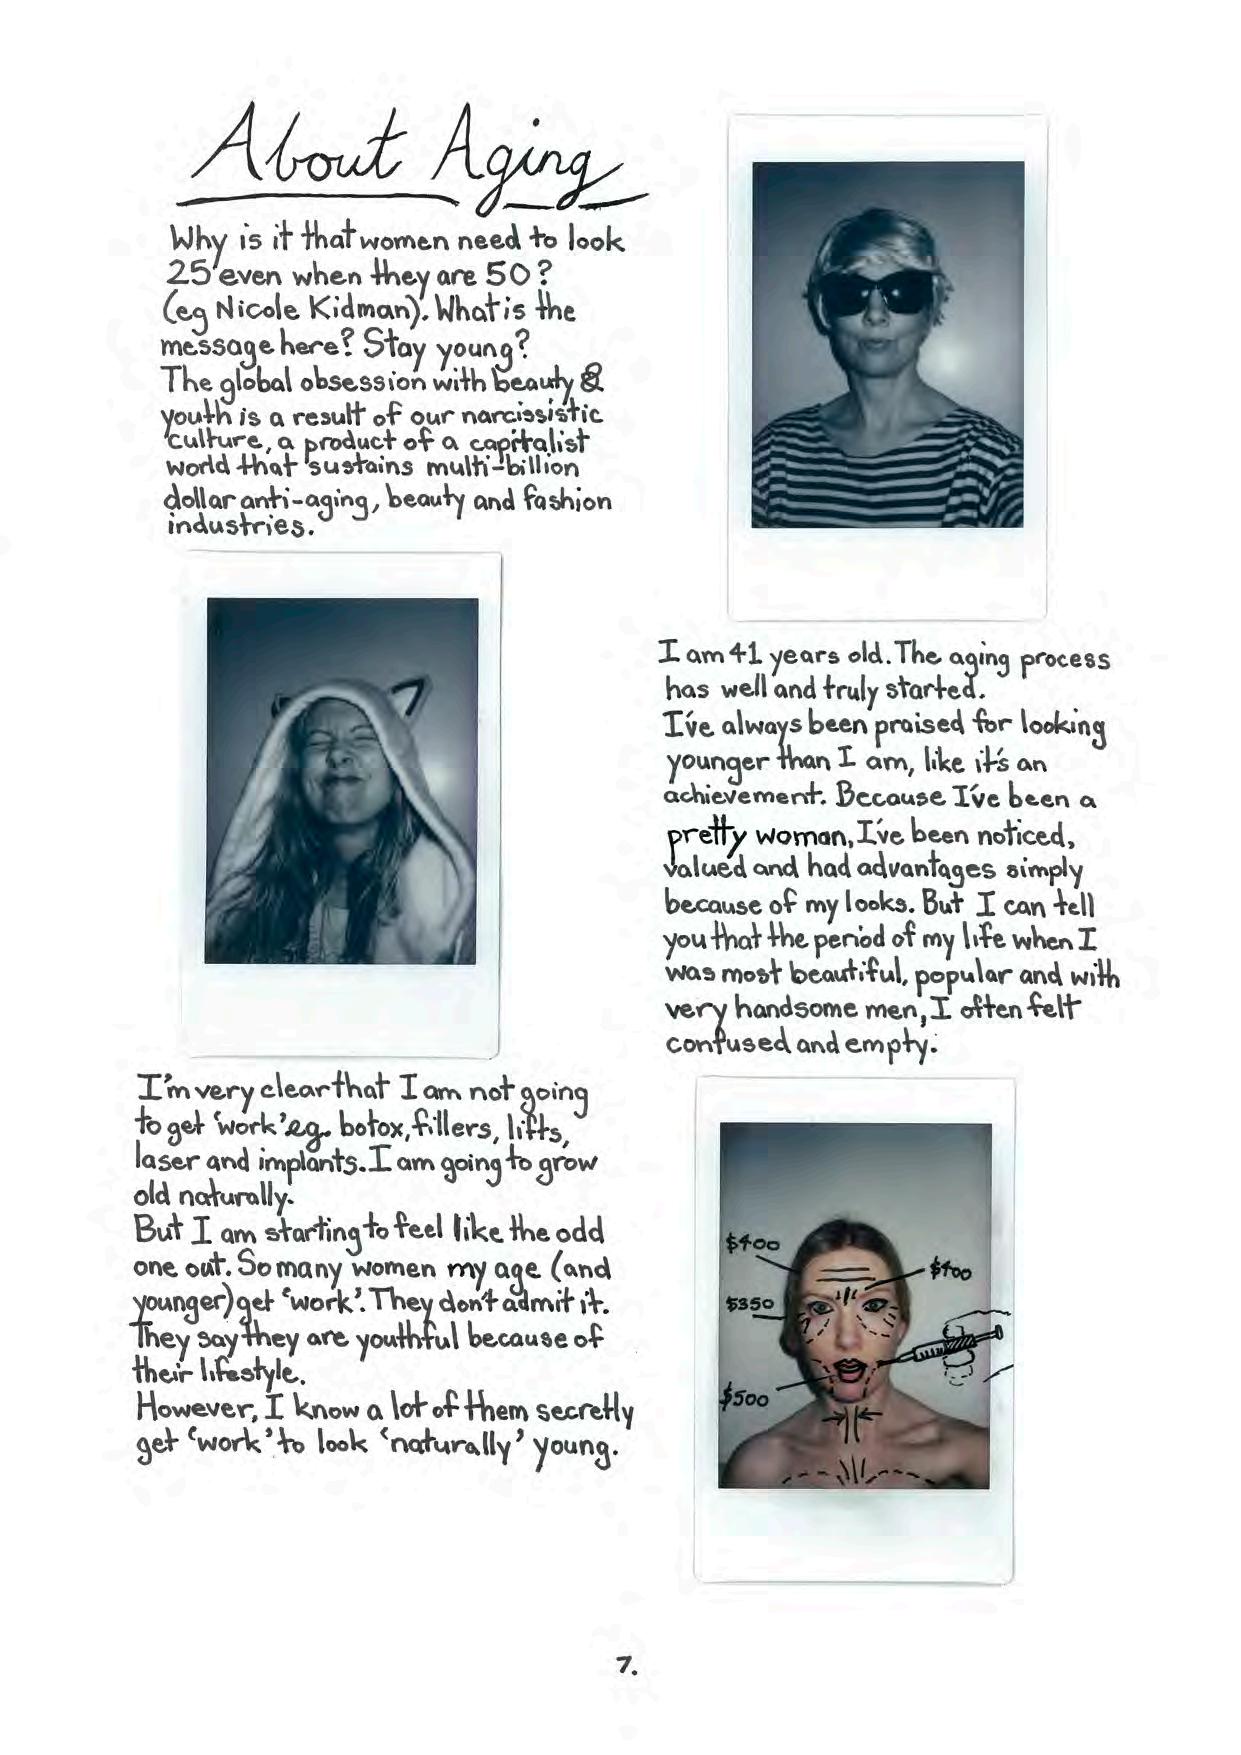 About Aging
Why is it that women need to look
25 even when they are 50?
(eg Nicole Kidman). What is the
message here? Stay young?
The global obsession with beauty &
youth is a result of our narcissistic
culture, a product of a capitalist
world that sustains multi-billion
dollar anti-aging, beauty and fashion
industries.
I am 41 years old. The aging process
has well and truly started.
I've always been praised for looking
younger than I am, like it's an
achievement. Because I've been a
pretty woman, I've been noticed,
valued and had advantages simply
because of my looks. But I can tell
you that the period of my life when I
was most beautiful, popular and with
very handsome men, I often felt
confused and empty.
I'm very clear that I am not going
to get 'work' eg. botox, fillers, lifts,
laser and implants. I am going to grow
old naturally.
But I am starting to feel like the odd
one out. So many women my age (and
younger) get 'work'. They don't admit it.
They say they are youthful because of
their lifestyle.
However, I know a lot of them secretly
get 'work' to look 'naturally' young.
$400
$400
$350
$500
7.